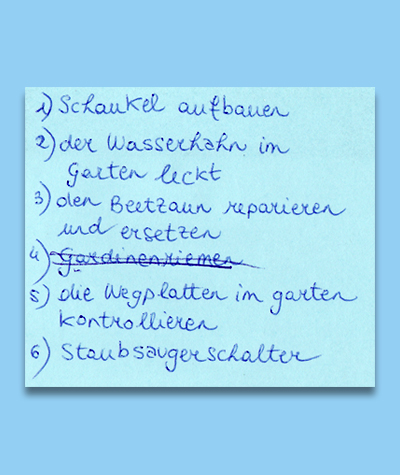 1) Schaukel aufbauen
2) der Wasserhahn im
Garten leckt
3) den Beetzaun reparieren
und ersetzen
4) Gardinenriemen
5) die Wegplatten im garten
kontrollieren
6) Staubsaugerschalter